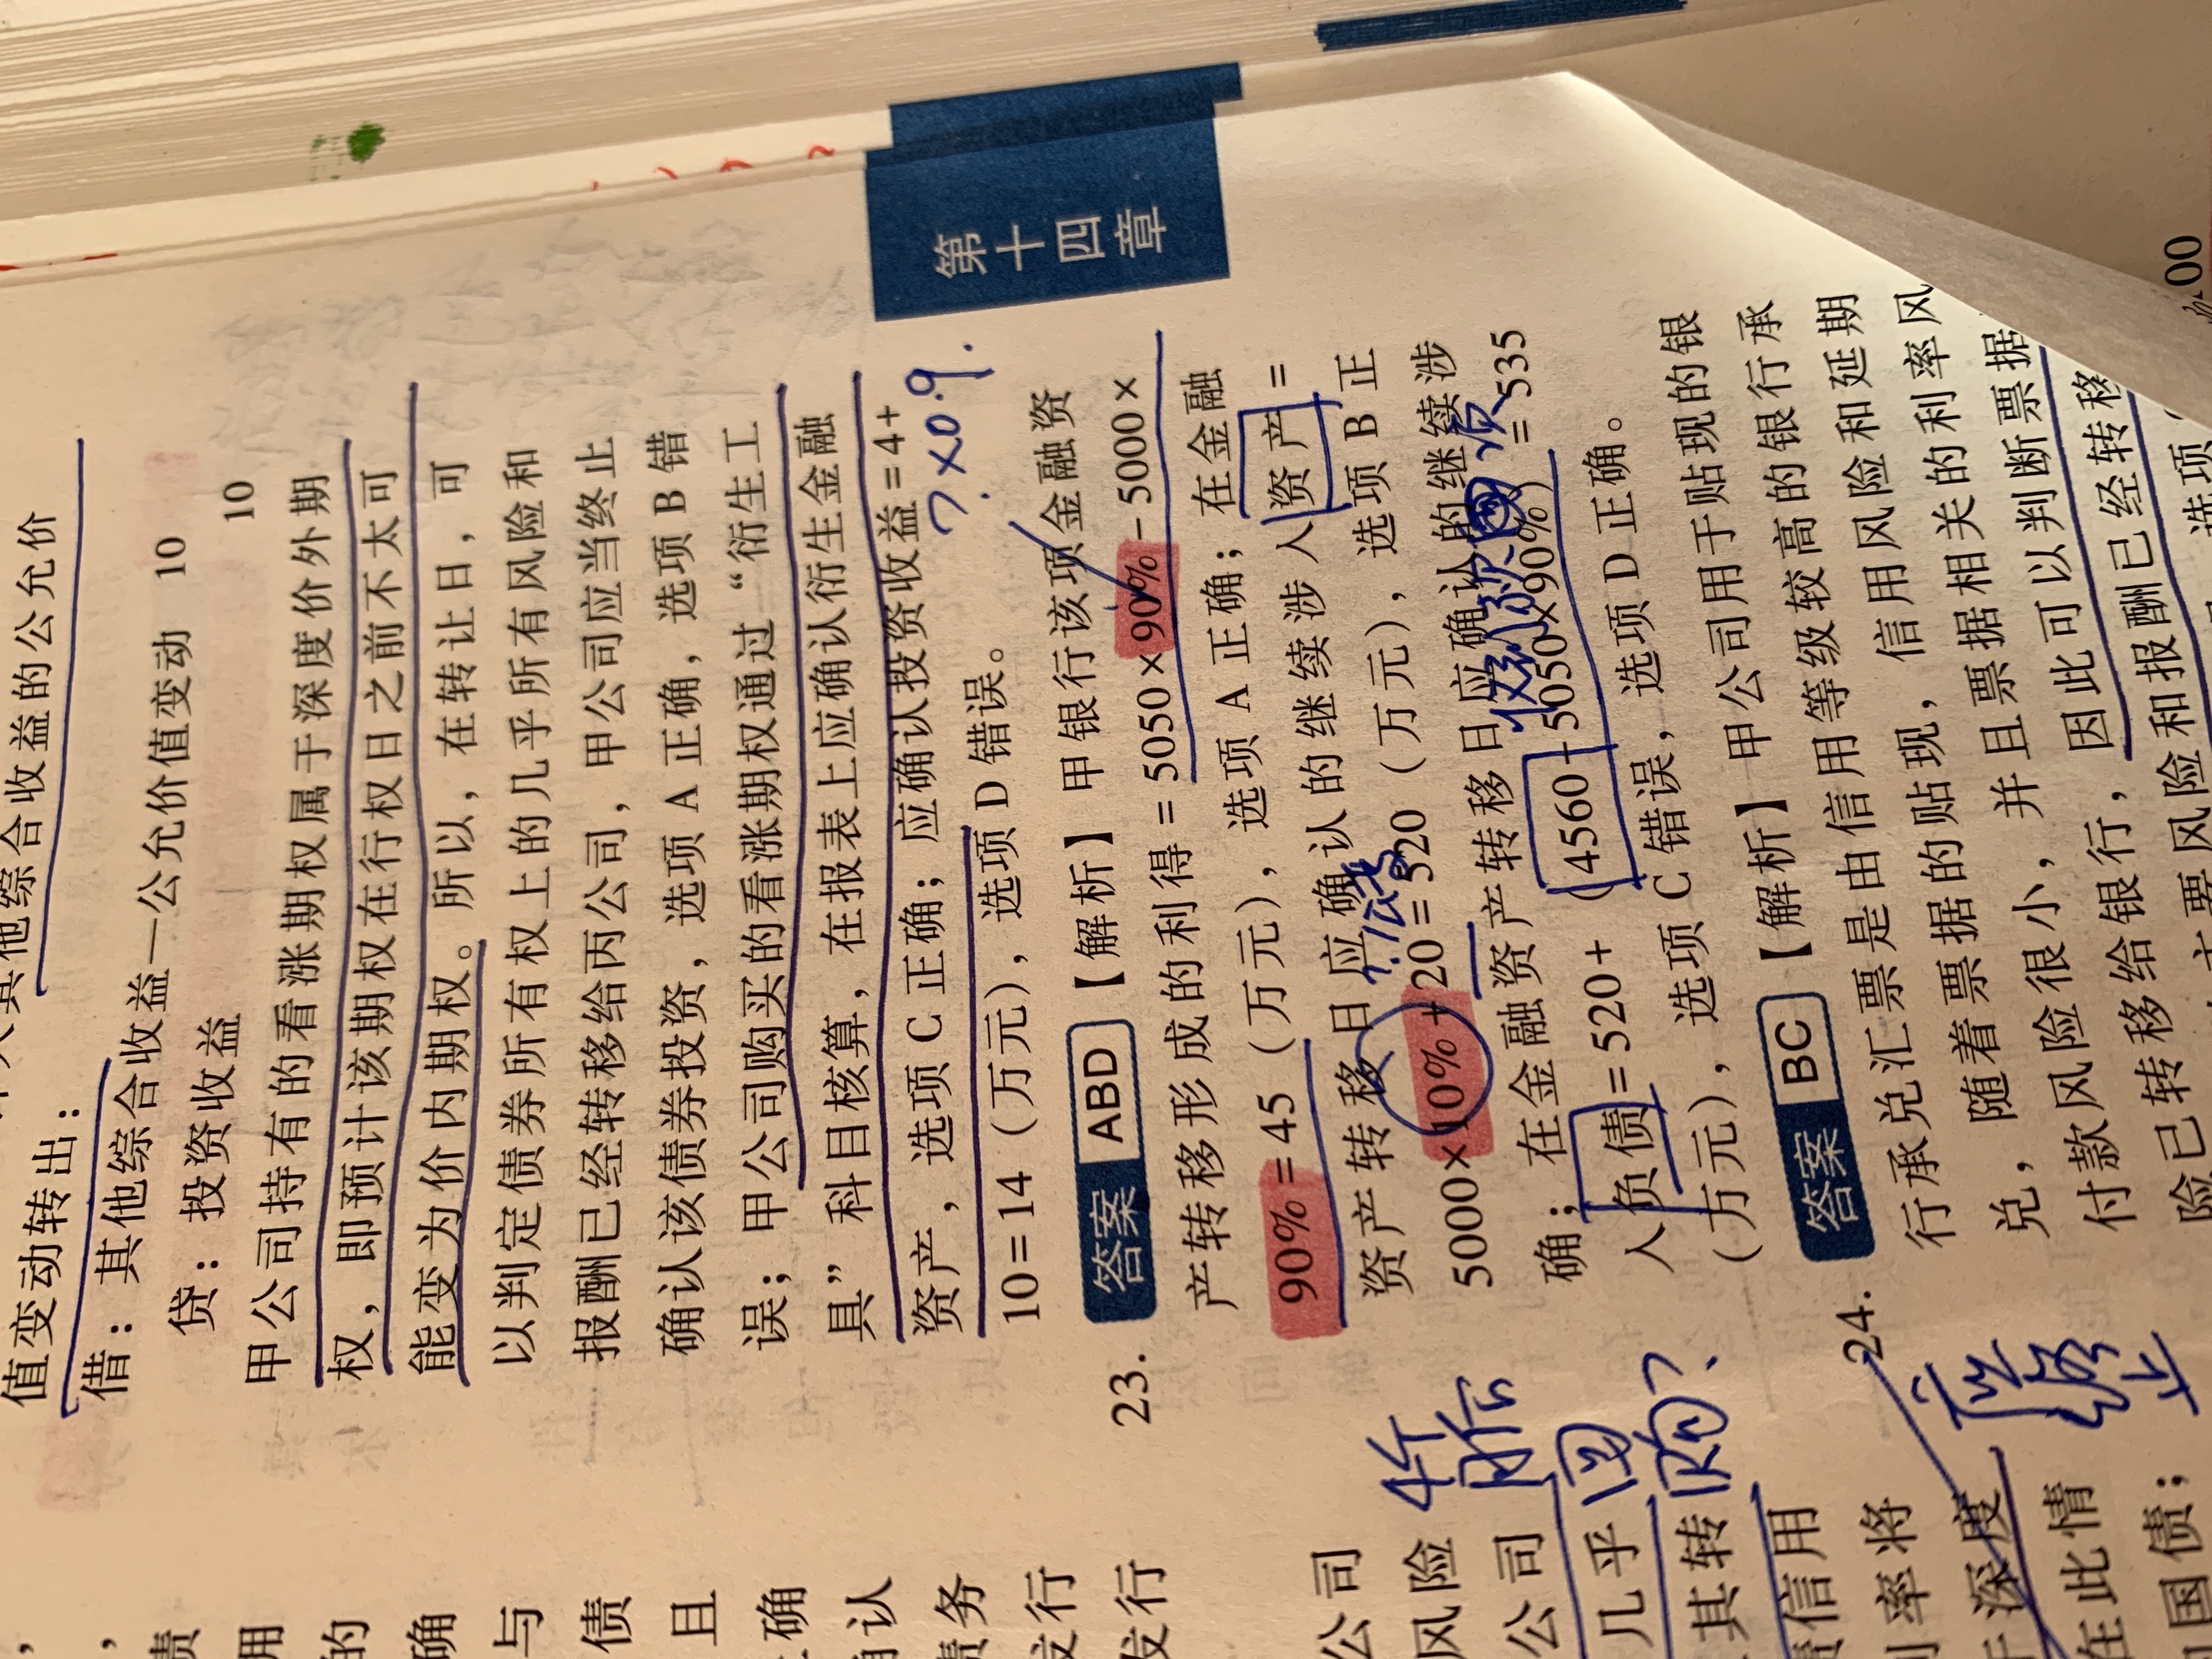 其他综合收益的公允价
值变动转出：
借：其他综合收益—公允价值变动 10
贷：投资收益 10
甲公司持有的看涨期权属于深度价外期
权，即预计该期权在行权日之前不太可
能变为价内期权。所以，在转让日，可
以判定债券所有权上的几乎所有风险和
报酬已经转移给丙公司，甲公司应当终止
确认该债券投资，选项 A 正确，选项 B 错
误；甲公司购买的看涨期权通过“衍生工
具”科目核算，在报表上应确认衍生金融
资产，选项 C 正确；应确认投资收益=4+
10=14（万元），选项 D 错误。
?×0.9.
第十四章
23. 答案 ABD 【解析】甲银行该项金融资
产转移形成的利得=5050×90%-5000×
90%=45（万元），选项 A 正确；在金融
资产转移日应确认的继续涉入资产=
5000×10%+20=520（万元），选项 B 正
确；在金融资产转移日应确认的继续涉
入负债=520+（4560-5050×90%）=535
（万元），选项 C 错误，选项 D 正确。
24. 答案 BC 【解析】甲公司用于贴现的银
行承兑汇票是由信用等级较高的银行承
兑，随着票据的贴现，信用风险和延期
付款风险很小，并且票据相关的利率风
险已转移给银行，因此可以判断票据
风险和报酬已经转移
选项
公司
风险
公司
几乎
其转
信用
率将
深度
在此情
国债；
责
用
的
确
与
债
且
确
认
债务
发行
发行
回购?
00